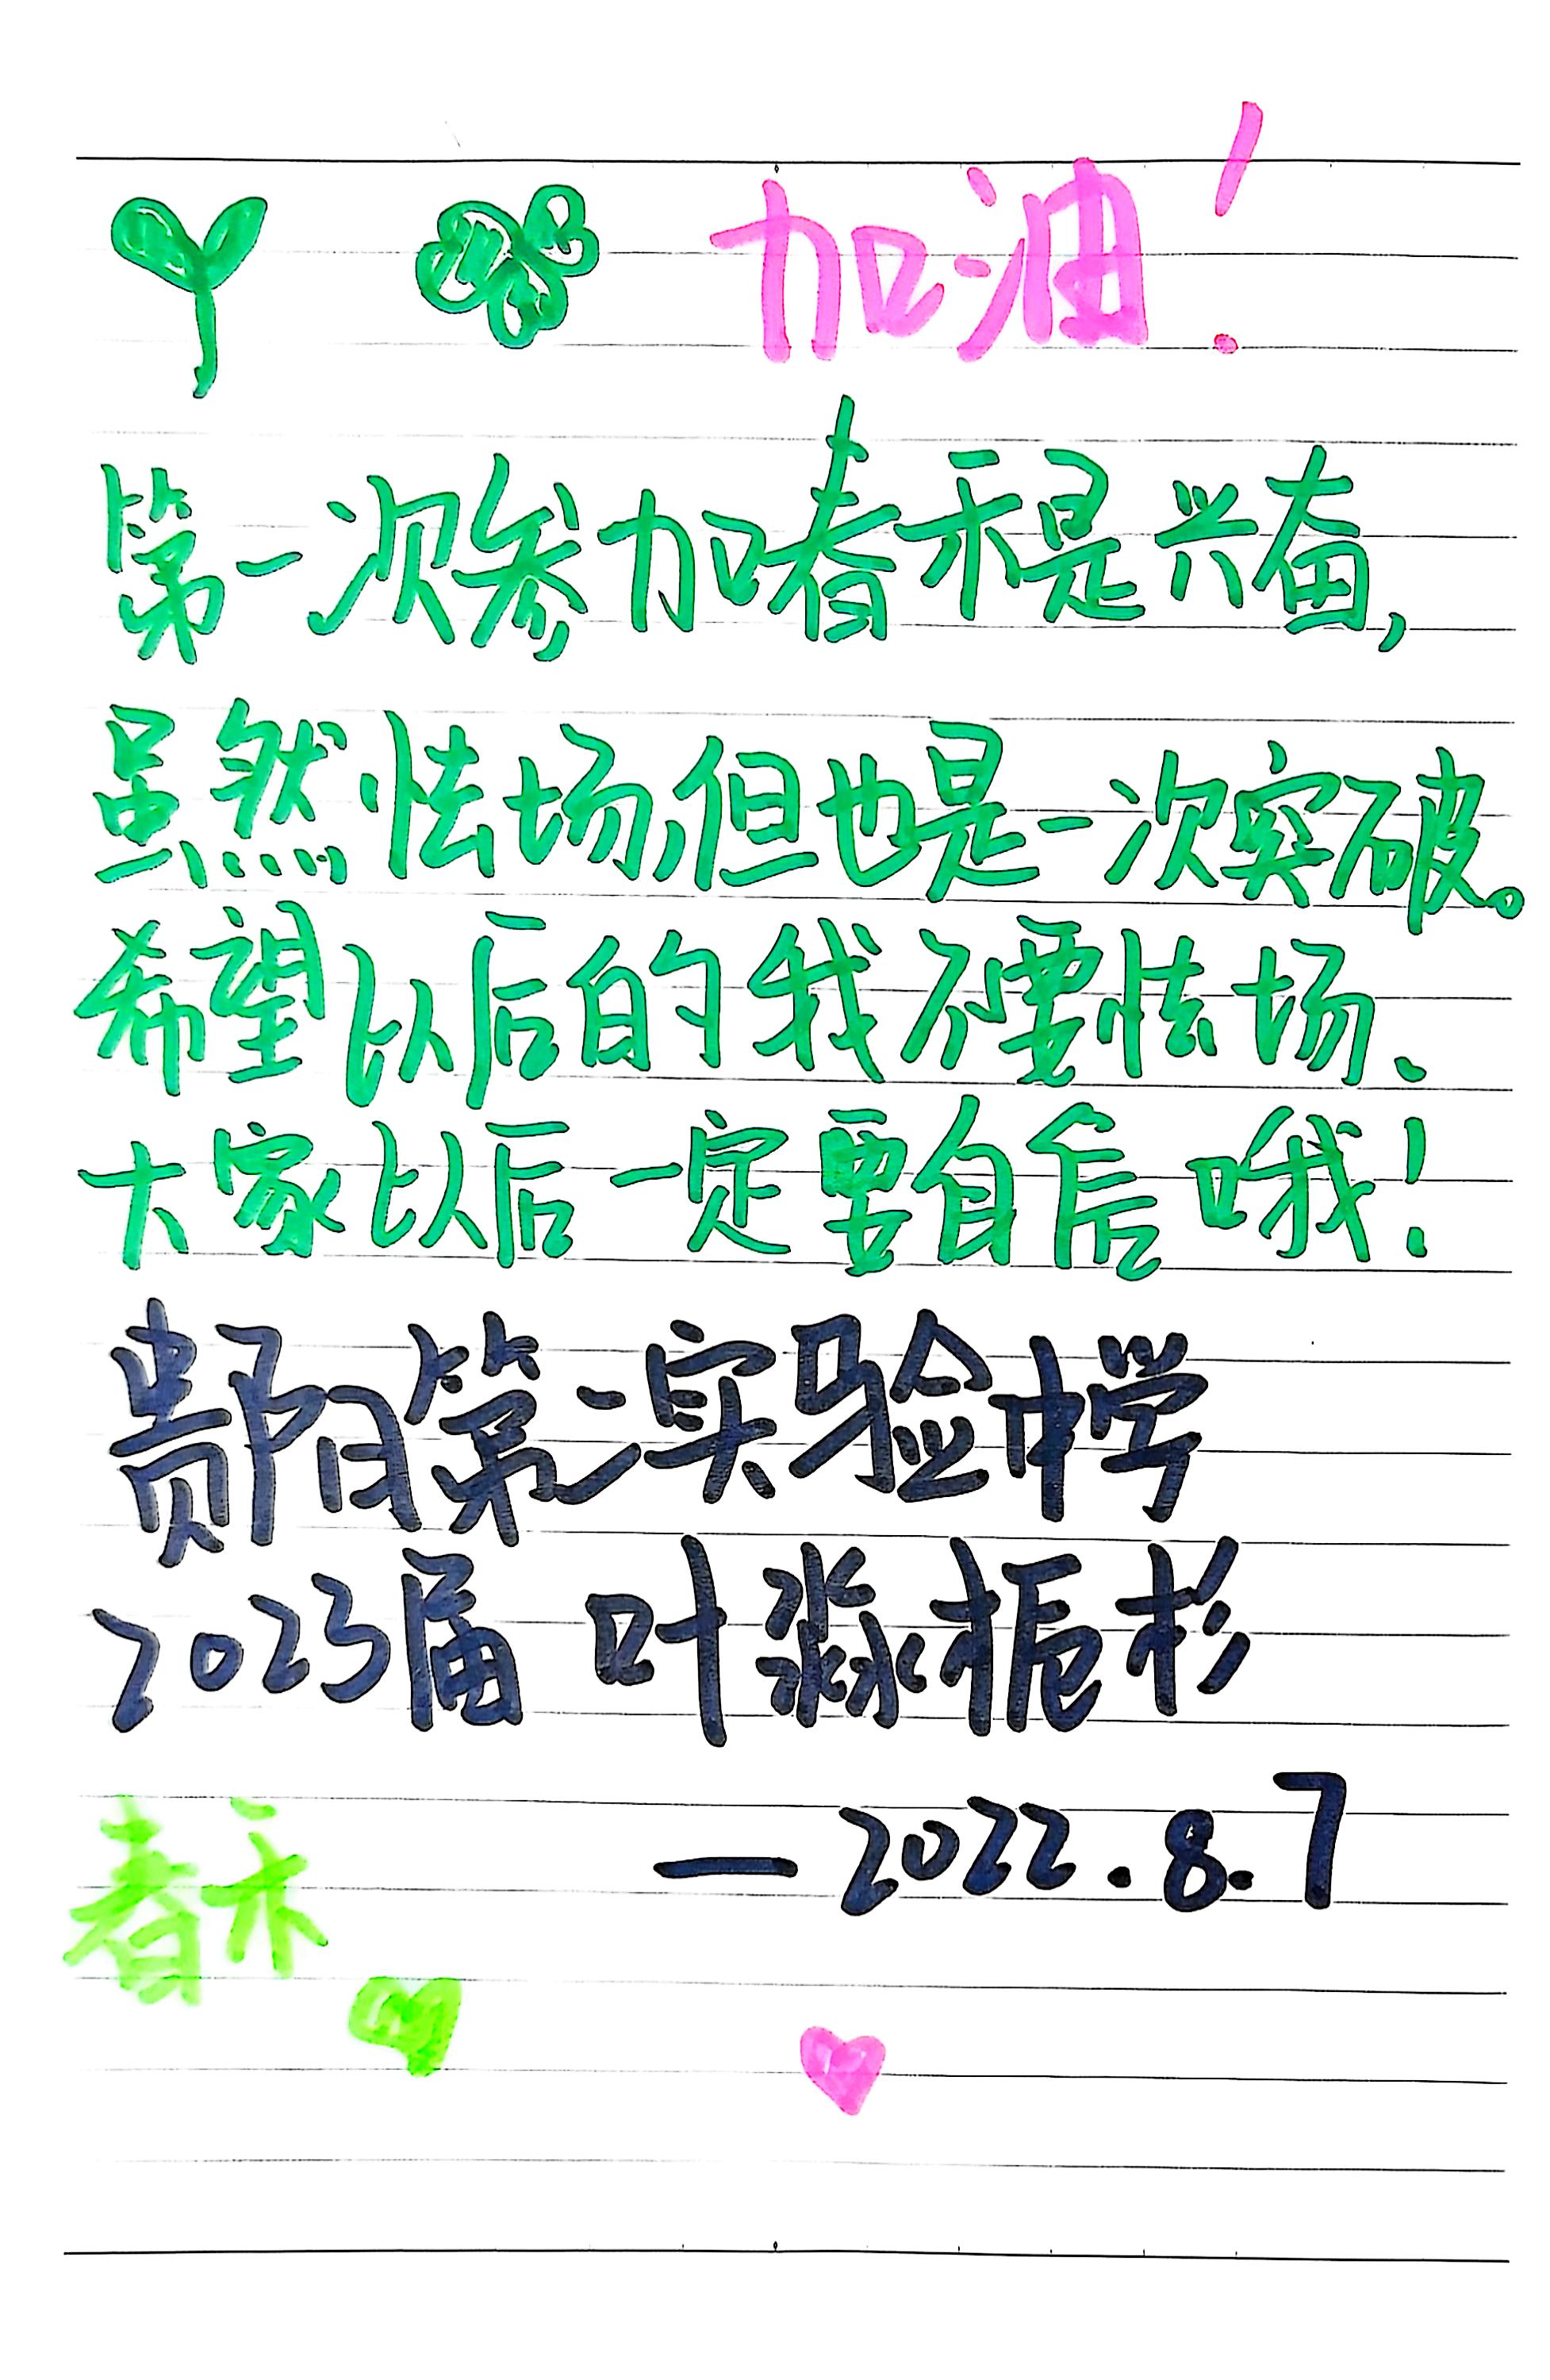 加油!
第一次参加春禾是兴奋,
虽然怯场,但也是一次突破。
希望以后的我不要怯场、
大家以后一定要自信哦!
贵阳第二实验中学
2023届 叶淼栀杉
—2022.8.7
春禾